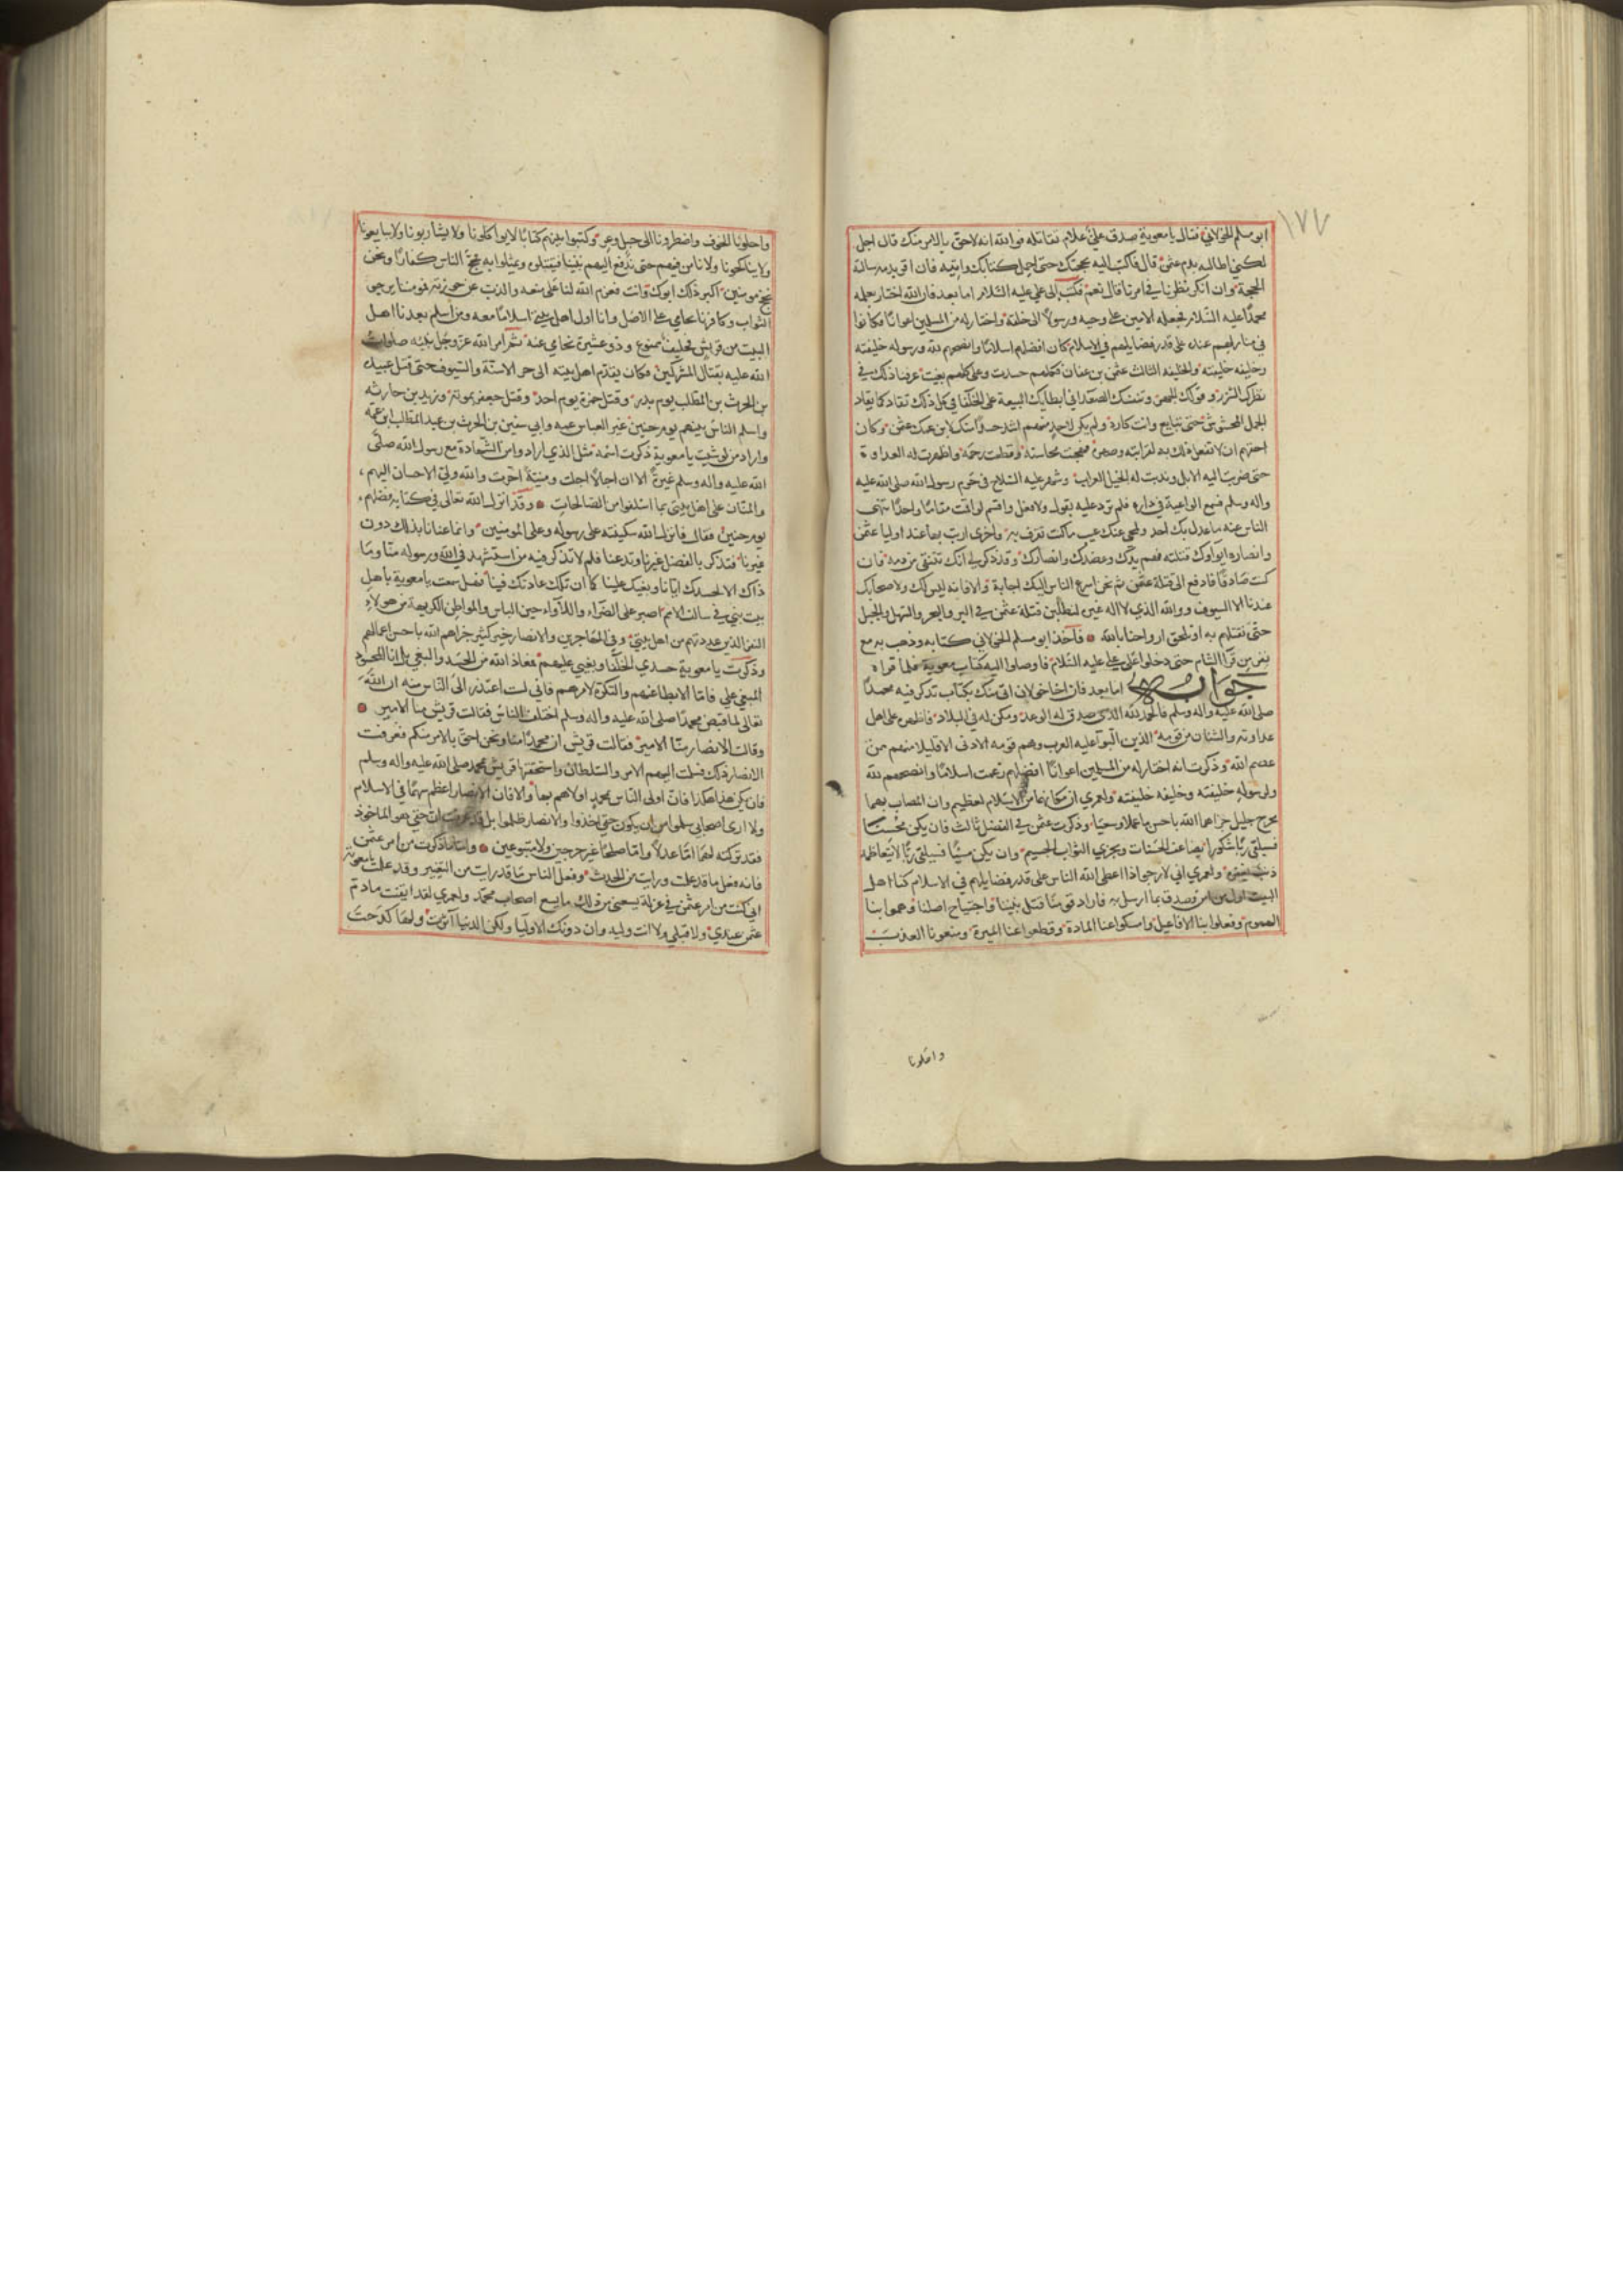 ١٧٧
ابو مسلم الخولاني فقال يا معوية صدق علي علام تقاتله فوالله انه لاحق بالامر منك قال اجل
لكني اطالبه بدم عثمن قال فاكتب اليه بحجتك حتى احمل كتابك واتيه فان اقر بدمه سالته
الحجة وان انكر نظرنا في امرنا قال نعم فكتب الى علي عليه السلام اما بعد فان الله اختار بعلمه
محمدا عليه السلام فجعله الامين على وحيه ورسولا الى خلقه واختار له من المسلمين اعوانا فكانوا
في منازلهم عنده على قدر فضايلهم في الاسلام كان افضلهم اسلاما وانصحهم لله ورسوله خليفته
وخليفه خليفته والخليفه الثالث عثمن بن عفان فكلهم حسدت وعلى كلهم بغيت عرفنا ذلك في
نظرك الشزر وقولك الهجر وتنفسك الصعدا في ابطايك البيعة على الخلفا في كل ذلك تقاد كما يقاد
الجمل المخشوش حتى تبايع وانت كاره ولم يكن لاحد منهم اشد حسدا منك لابن عمك عثمن وكان
احقهم ان لا تفعل ذلك به لقرابته وصهره فقبحت محاسنه وقطعت رحمه واظهرت له العداوة
حتى ضربت اليه الابل وندبت له الخيل العراب وشهر عليه السلاح في حرم رسول الله صلى الله عليه
واله وسلم فتسمع الواعية في داره فلم ترد عليه بقول ولا فعل واقسم لو اقمت مقاما واحدا تنهى
الناس عنه ما عدل بك احد ولمحي عنك عيب ما كنت تعرف به واخرى انت بها عند اوليا عثمن
وانصاره ايواوك قتلته فهم يدك وعضدك وانصارك وقد ذكر لي انك تنتفي من دمه فان
كنت صادقا فادفع الى قتلة عثمن ثم نحن اسرع الناس اليك اجابة والا فانه ليس لك ولاصحابك
عندنا الا السيوف ووالله الذي لا اله غيره لنطلبن قتلة عثمن في البر والبحر والسهل والجبل
حتى نقتلهم به او تلحق ارواحنا بالله فاخذ ابو مسلم الخولاني كتابه وذهب به مع
نفر من قرا الشام حتى دخلوا على علي عليه السلام فاوصلوا اليه كتاب معوية فلما قراه
جوابه اما بعد فان اخا خولان اتى منك بكتاب تذكر فيه محمدا
صلى الله عليه واله وسلم فالحمد لله الذي صدق له الوعد ومكن له في البلاد فاظهره على اهل
عداوته والشنان من قومه الذين البوا عليه العرب وهم قومه الادنى الا قليلا منهم ممن
عصم الله وذكرت انه اختار له من المسلمين اعوانا افضلهم زعمت اسلاما وانصحهم لله
ولرسوله خليفته وخليفه خليفته ولعمري ان مكانهما من الاسلام لعظيم وان المصاب بهما
لجرح جليل جزاهما الله باحسن ما عملا وسعيا وذكرت عثمن في الفضل ثالث فان يكن محسنا
فسيلقى ربا شكورا يضاعف الحسنات ويجزي الثواب الجسيم وان يكن مسيا فسيلقى ربا لا يتعاظمه
ذنب يغفره ولعمري اني لارجو اذا اعطى الله الناس على قدر فضايلهم في الاسلام كنا اهل
البيت اول من امن وصدق بما ارسل به فاراد قومنا قتل نبينا واجتياح اصلنا وهموا بنا
الهموم وفعلوا بنا الافاعيل وامسكوا عنا المادة وقطعوا عنا الميرة ومنعونا العذب
واحلونا
واحلونا الخوف واضطرونا الى جبل وعر وكتبوا بينهم كتابا لا يواكلونا ولا يشاربونا ولا يبايعونا
ولا يناكحونا ولا نامن فيهم حتى ندفع اليهم نبينا فيقتلوه ويمثلوا به الناس كفارا ونحن
مومنين اكبر ذلك ابوك وانت فعزم الله لنا على منعه والذب عن حوزته فمومننا يرجو
الثواب وكافرنا يحامي على الاصل وانا اول اهل بيتي اسلاما معه ومن اسلم بعدنا اهل
البيت من قريش فحليف ممنوع وذو عشيرة تحامي عنه ثم امر الله عز وجل نبيه صلوات
الله عليه بقتال المشركين فكان يقدم اهل بيته الى حر الاسنة والسيوف حتى قتل عبيدة
بن الحرث بن المطلب يوم بدر وقتل حمزة يوم احد وقتل جعفر بموتة وزيد بن حارثه
واسلم الناس نبيهم يوم حنين غير العباس عمه وابي سفين بن الحرث بن عبد المطلب ابن عمه
واراد من لو شيت يا معوية ذكرت اسمه مثل الذي ارادوا من الشهادة مع رسول الله صلى
الله عليه واله وسلم غير مرة الا ان اجالا اجلت ومنية اخرت والله ولي الاحسان اليهم
والمنان على اهل بيتي بما اسلفوا من الصالحات وقد انزل الله تعالى في كتابه فضلهم
يوم حنين فقال فانزل الله سكينته على رسوله وعلى المومنين وانما عنانا بذلك دون
غيرنا فتذكر بالفضل غيرنا وتدعنا فلم لا تذكر فيه من استشهد في الله ورسوله منا وما
ذاك الا لحسدك ايانا وبغيك علينا كما ان تلك عادتك فينا فهل سمعت يا معوية باهل
بيت نبي في سالف الامم اصبر على الضراء واللاواء حين الباس والمواطن الكريهة من هولاء
النفر الذين عددتهم من اهل بيتي وفي المهاجرين والانصار خير كثير جزاهم الله باحسن اعمالهم
وذكرت يا معوية حسدي الخلفا وبغيي عليهم فمعاذ الله من الحسد والبغي بل انا المحسود
المبغي علي فاما الابطا عنهم والتكره لامرهم فاني لست اعتذر الى الناس منه ان الله
تعالى لما قبض محمدا صلى الله عليه واله وسلم اختلف الناس فقالت قريش منا الامير
وقالت الانصار منا الامير فقالت قريش ان محمدا منا ونحن احق بالامر منكم فعرفت
الانصار ذلك فسلمت اليهم الامر والسلطان واستحقتها قريش بمحمد صلى الله عليه واله وسلم
فان يكن هذا هكذا فان اولى الناس بمحمد اولاهم بها والا فان الانصار اعظم سهما في الاسلام
ولا ارى اصحابي سلموا من ان يكون حقي اخذوا والانصار ظلموا بل قد عرفت ان حقي هو الماخوذ
فقد تركته لهم اما عدلا واما صلحا غير حرجين ولا متبوعين واما ما ذكرت من امر عثمن
فانه فعل ما قد علمت ورايت من الحدث وفعل الناس ما قد رايت من التغيير وقد علمت يا معوية
اني كنت من امر عثمن في عزلة يسعني من ذلك ما يسع اصحاب محمد ولعمري لقد ايقنت ما دم
عثمن عندي ولا قبلي ولا انت وليه وان دونك الاوليا ولكن الدنيا اثرت ولها كدحت